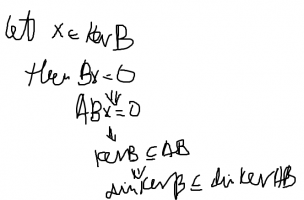 let x ∈ ker B
then Bx = 0
⇓
ABx = 0
↓
ker B ⊆ AB
⇓
dim ker B ≤ dim ker AB